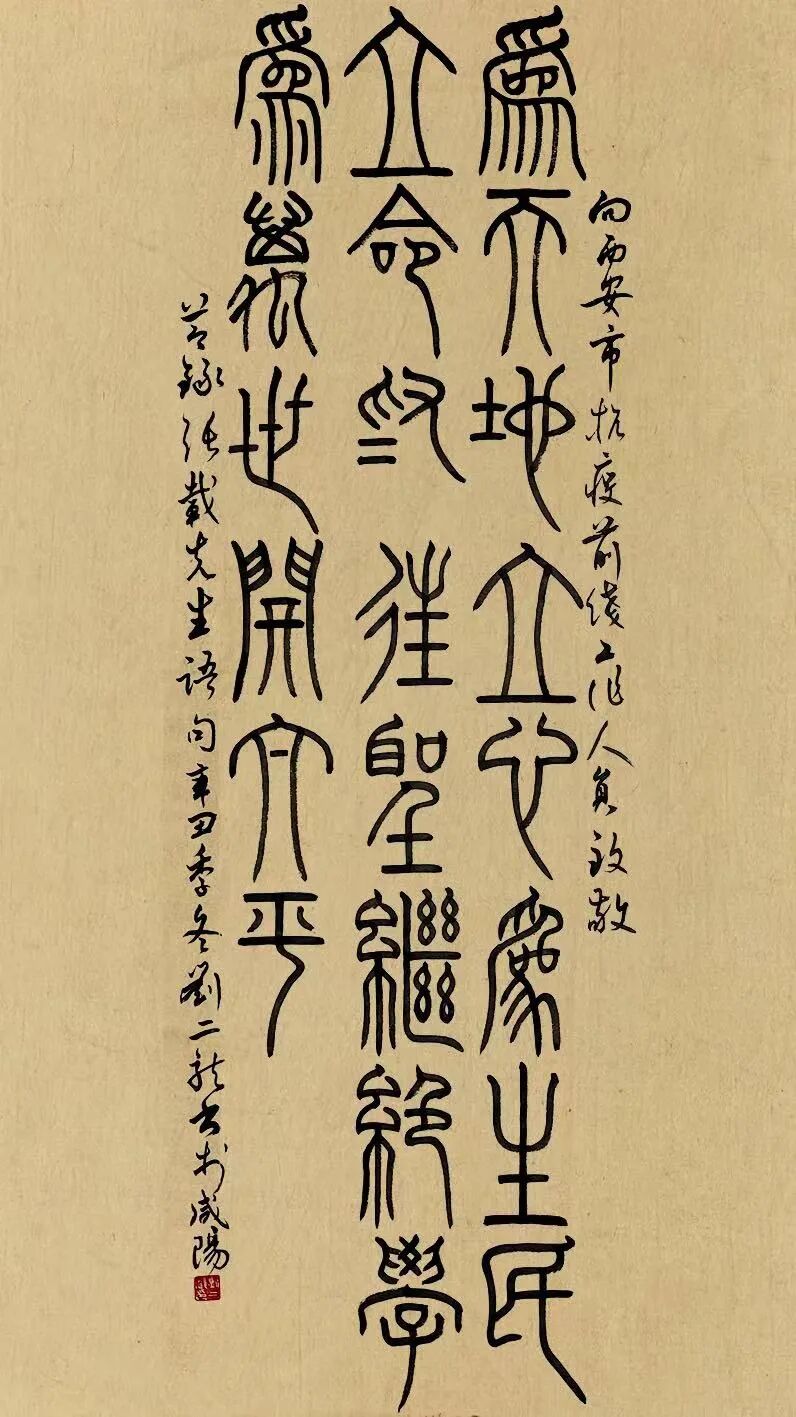 向西安市抗疫前线工作人员致敬
為天地立心為生民
立命為往聖繼絕學
為萬世開太平
節錄張載先生語句辛丑季冬劉二龍书於咸陽